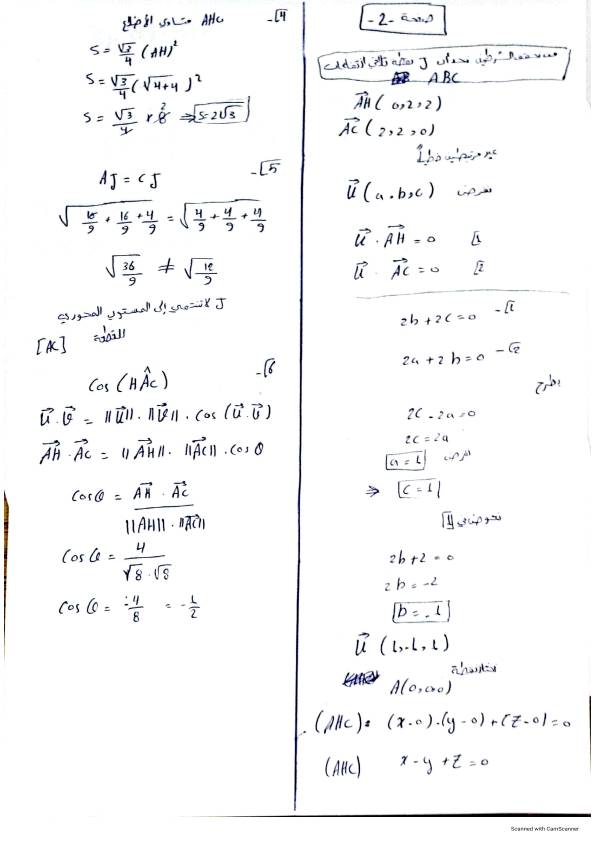 صفحة -2-
ABC
AH (0,2,2)
AC (2,2,0)
غير مرتبطين خطياً
نفرض U (a,b,c)
U . AH = 0 1
U . AC = 0 2
2b + 2c = 0 -1
2a + 2b = 0 -2
بطرح
2c - 2a = 0
2c = 2a
نفرض a = 1
⇒ c = 1
نعوض في 1
2b + 2 = 0
2b = -2
b = -1
U (1,-1,1)
A(0,0,0)
(AHC): (x-0)-(y-0)+(z-0)=0
(AHC) x - y + z = 0
4- AHC متساوي الأضلاع
S = √3/4 (AH)²
S = √3/4 (√4+4)²
S = √3/4 × 8 ⇒ S = 2√3
5-
AJ = CJ
√(16/9 + 16/9 + 4/9) = √(4/9 + 4/9 + 4/9)
√(36/9) ≠ √(12/9)
J لا تنتمي إلى المستوي المحوري
للقطعة [AC]
6-
cos (HÂC)
U . V = ||U|| . ||V|| . cos (U . V)
AH . AC = ||AH|| . ||AC|| . cos θ
cos θ = AH . AC / ||AH|| . ||AC||
cos θ = 4 / √8 . √8
cos θ = -4/8 = -1/2
Scanned with CamScanner